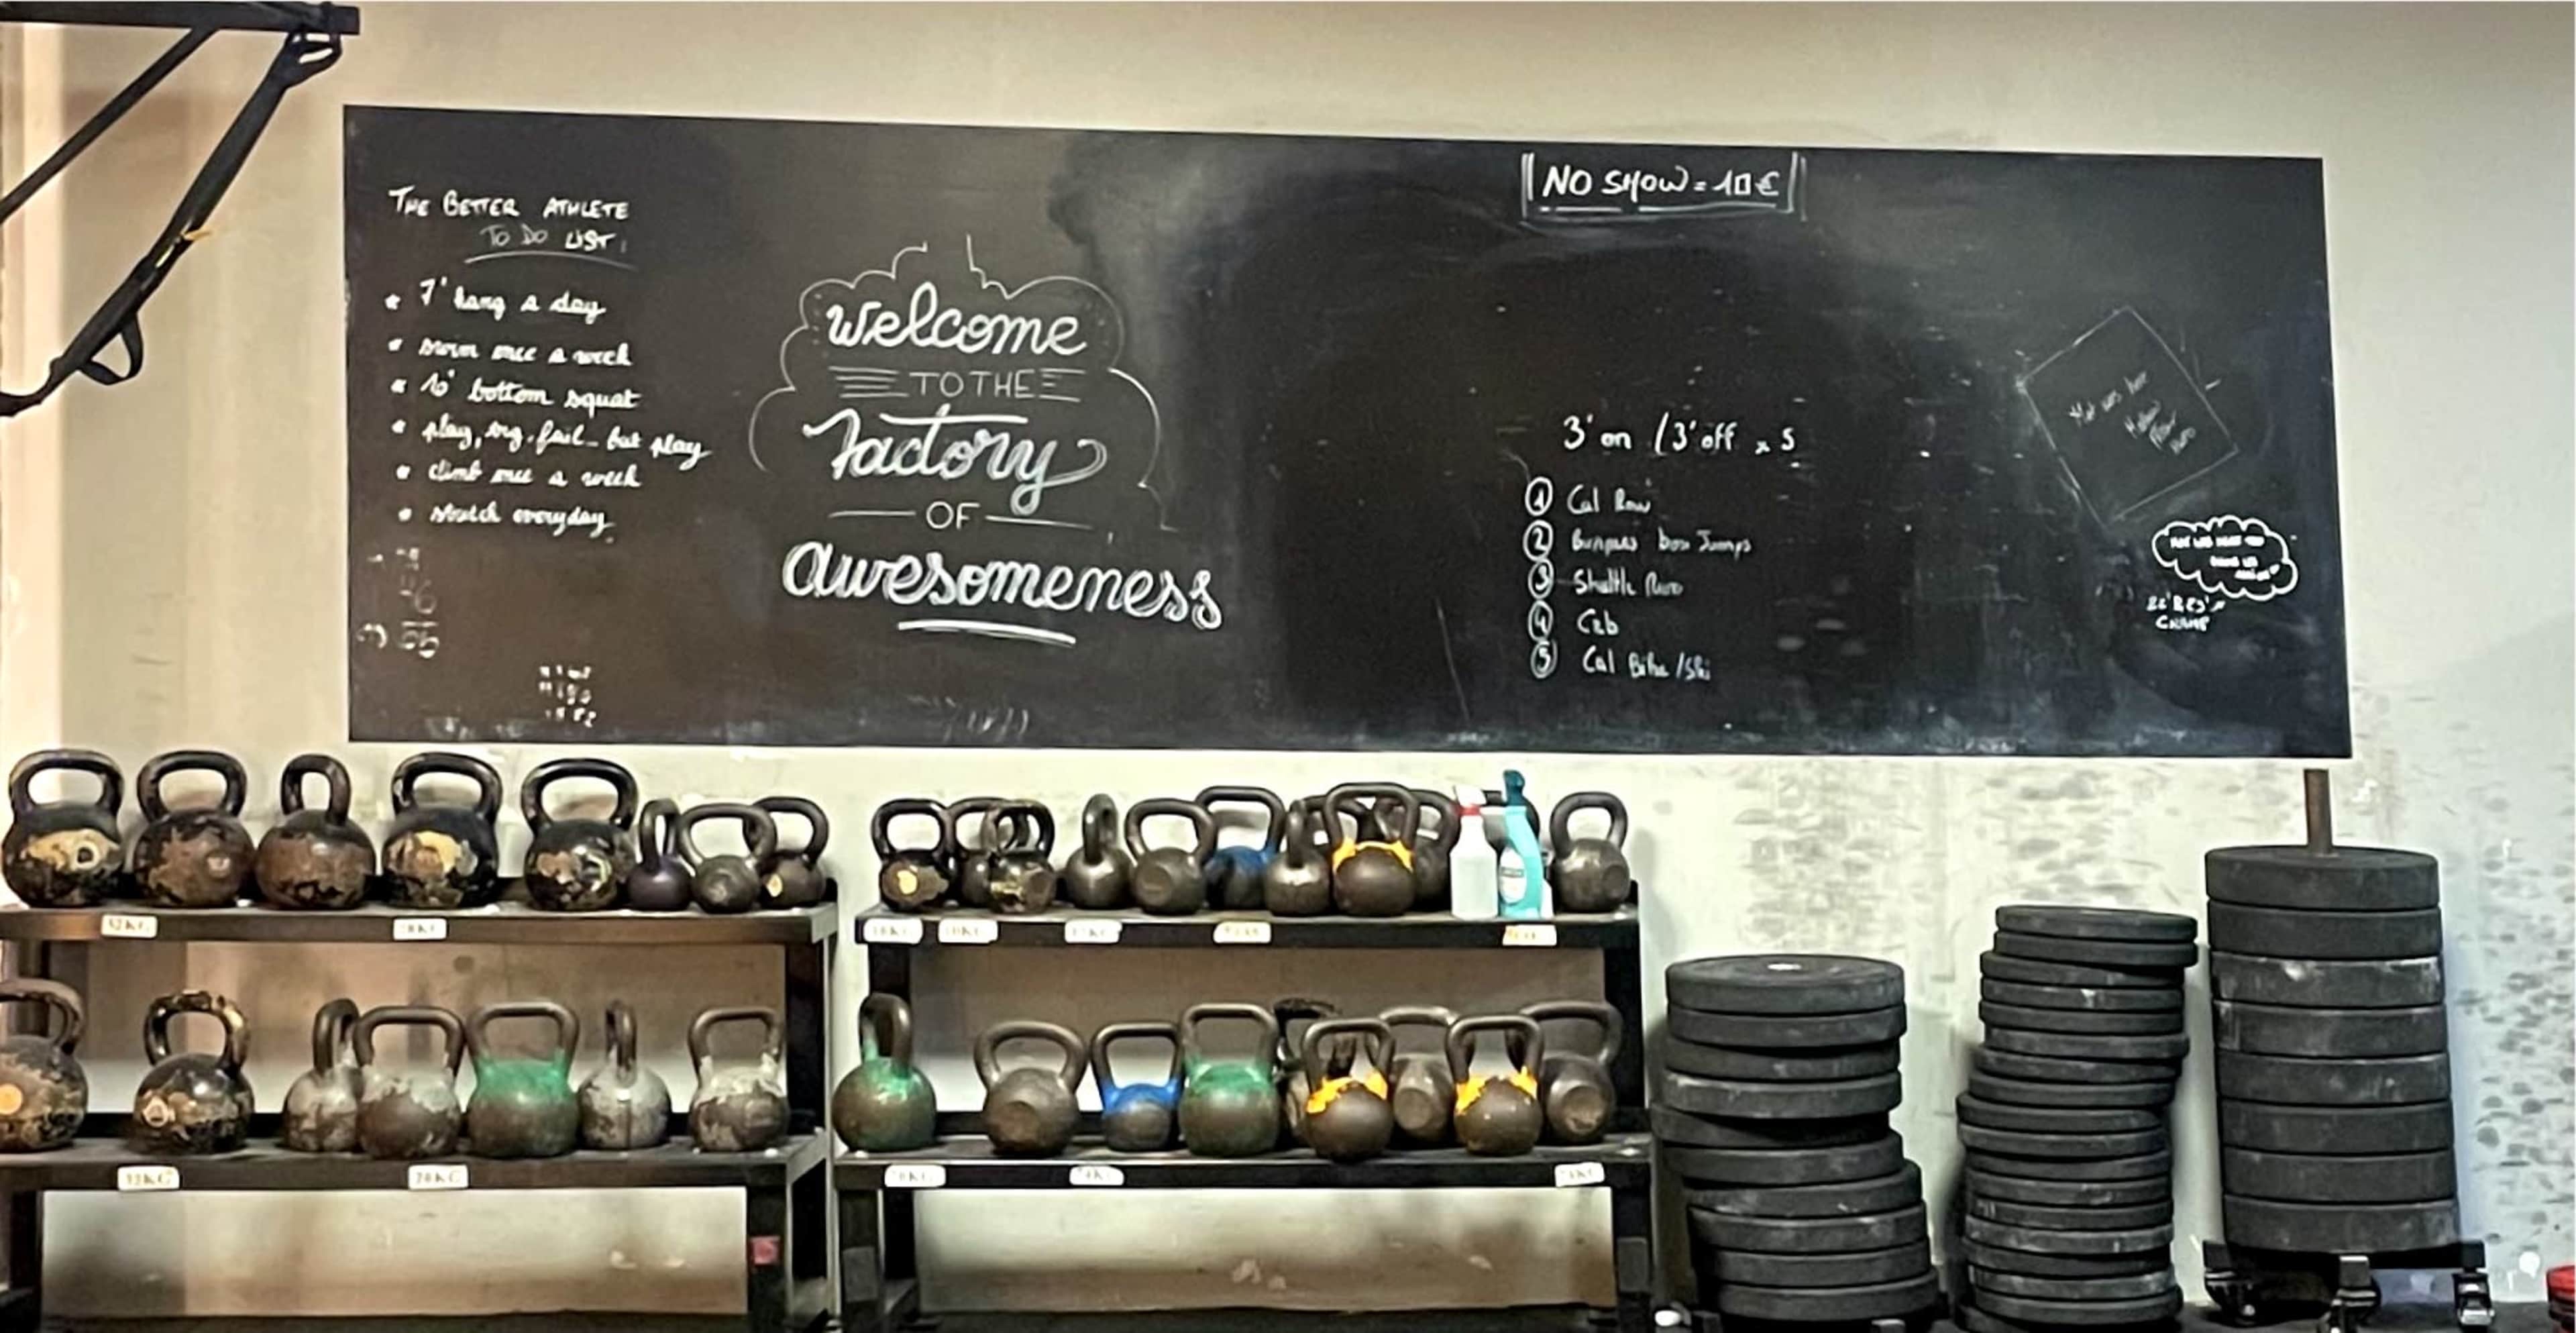 THE BETTER ATHLETE
TO DO LIST:
7' hang a day
swim once a week
10' bottom squat
play, try, fail but play
climb once a week
stretch everyday
welcome
TO THE
factory
OF
awesomeness
NO SHOW = 10€
3' on / 3' off x 5
① Cal Row
② Burpees box Jumps
③ Shuttle Run
④ C2b
⑤ Cal Bike / Ski
was here
CHAMP
32KG
28KG
20KG